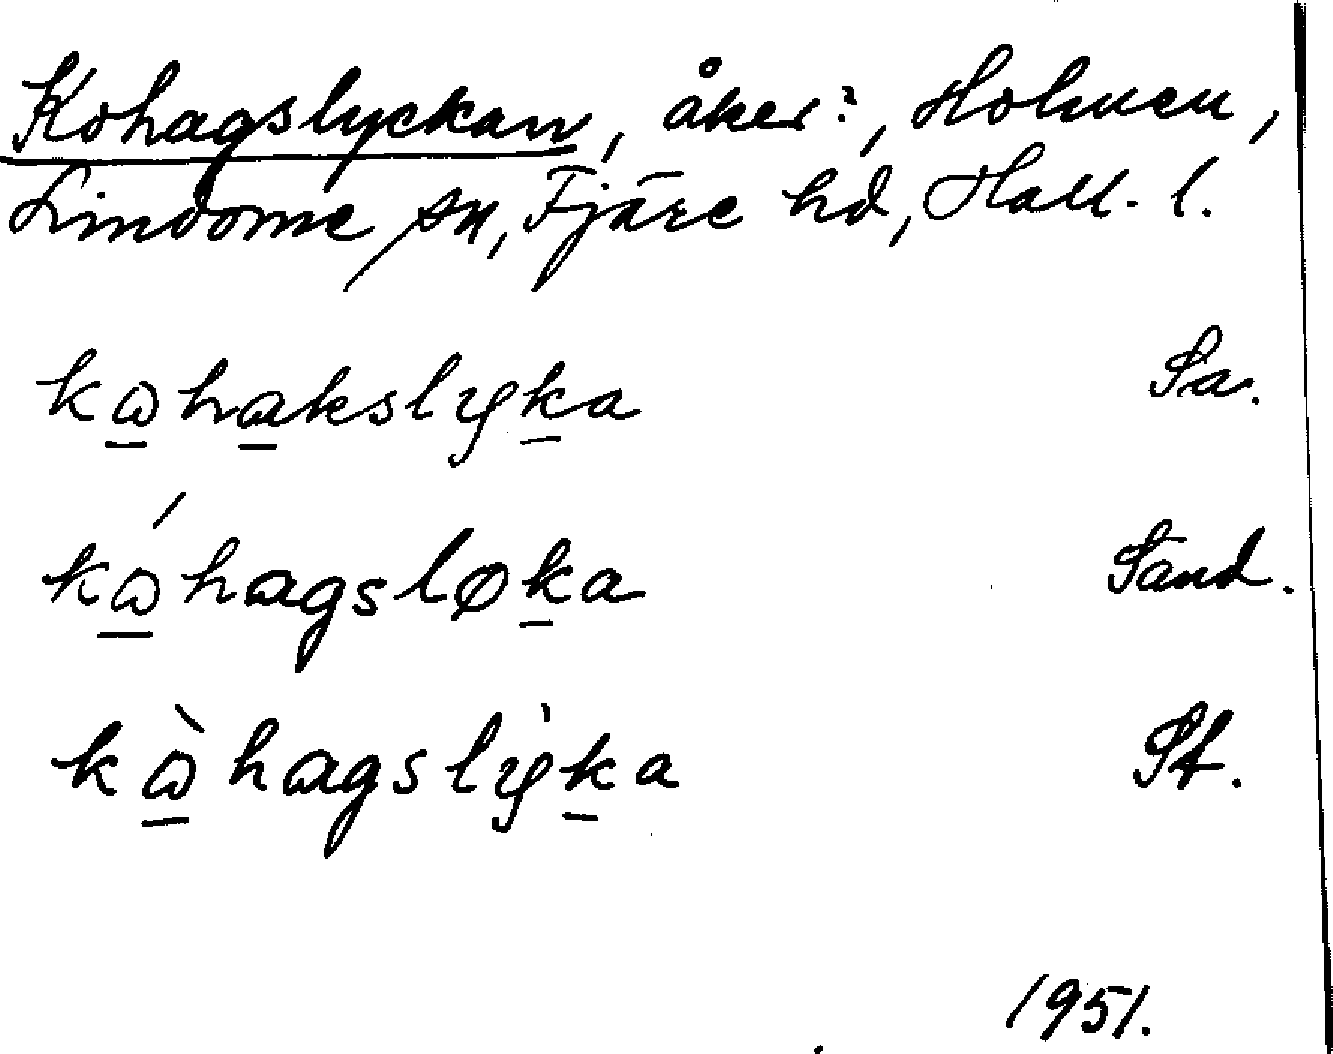 Kohagslyckan, åker?, Holmen,
Lindome sn, Fjäre hd, Hall. l.
kω̲hɑ̲kslyk̲a Sa.
kώ̲hagsløk̲a Sand.
kὼ̲hagslỳk̲a St.
1951.